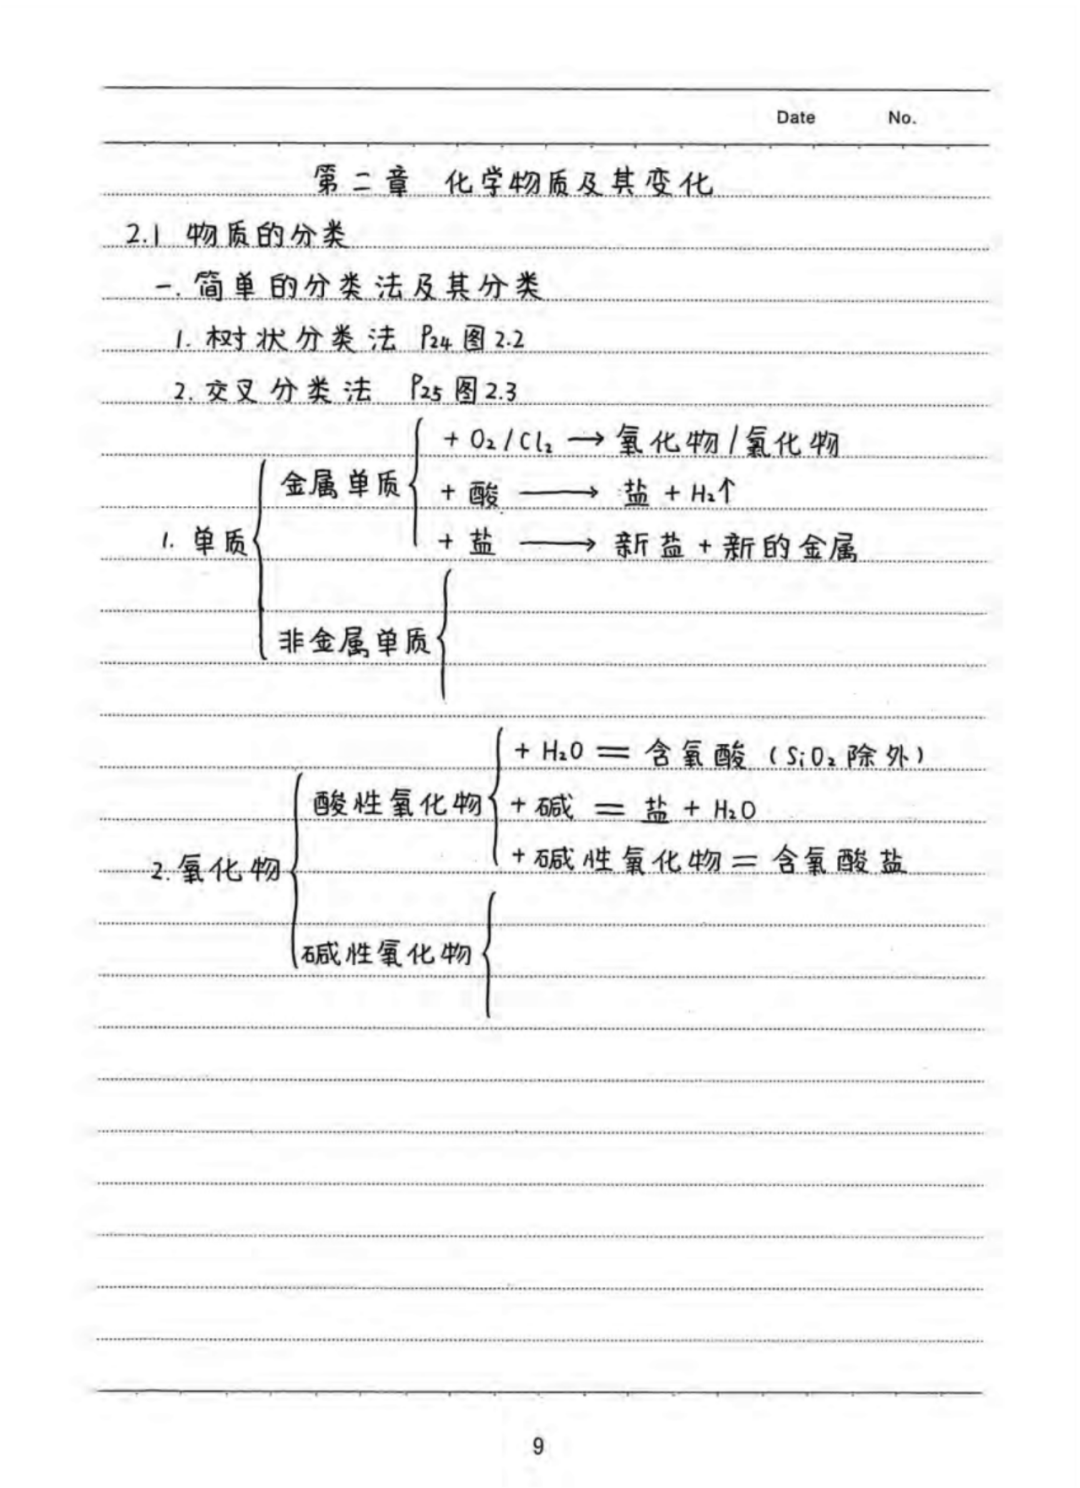 Date No.
第二章 化学物质及其变化
2.1 物质的分类
一.简单的分类法及其分类
1. 树状分类法 P24图2.2
2. 交叉分类法 P25图2.3
+ O₂/Cl₂ → 氧化物/氯化物
金属单质
+ 酸 → 盐 + H₂↑
1. 单质
+ 盐 → 新盐 + 新的金属
非金属单质
+ H₂O = 含氧酸 (SiO₂除外)
酸性氧化物
+ 碱 = 盐 + H₂O
+ 碱性氧化物 = 含氧酸盐
2. 氧化物
碱性氧化物
9